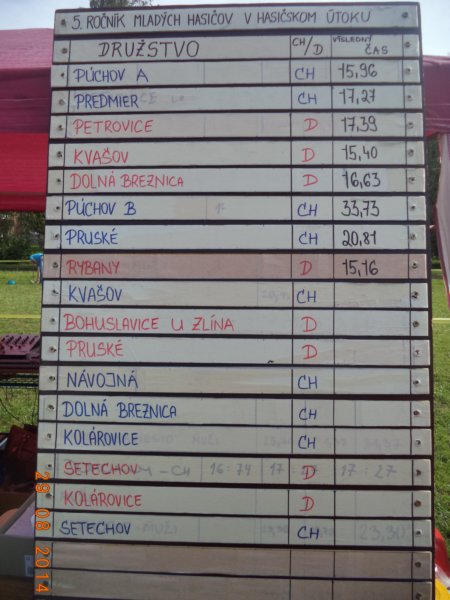 5. ROČNÍK MLADÝCH HASIČOV V HASIČSKOM ÚTOKU
DRUŽSTVO CH/D VÝSLEDNÝ ČAS
PÚCHOV A CH 15,96
PREDMIER CH 17,27
PETROVICE D 17,39
KVAŠOV D 15,40
DOLNÁ BREZNICA D 16,63
PÚCHOV B CH 33,73
PRUSKÉ CH 20,81
RYBANY D 15,16
KVAŠOV CH
BOHUSLAVICE U ZLÍNA D
PRUSKÉ D
NÁVOJNÁ CH
DOLNÁ BREZNICA CH
KOLÁROVICE CH
SETECHOV D
KOLÁROVICE D
SETECHOV CH
29 08 2014